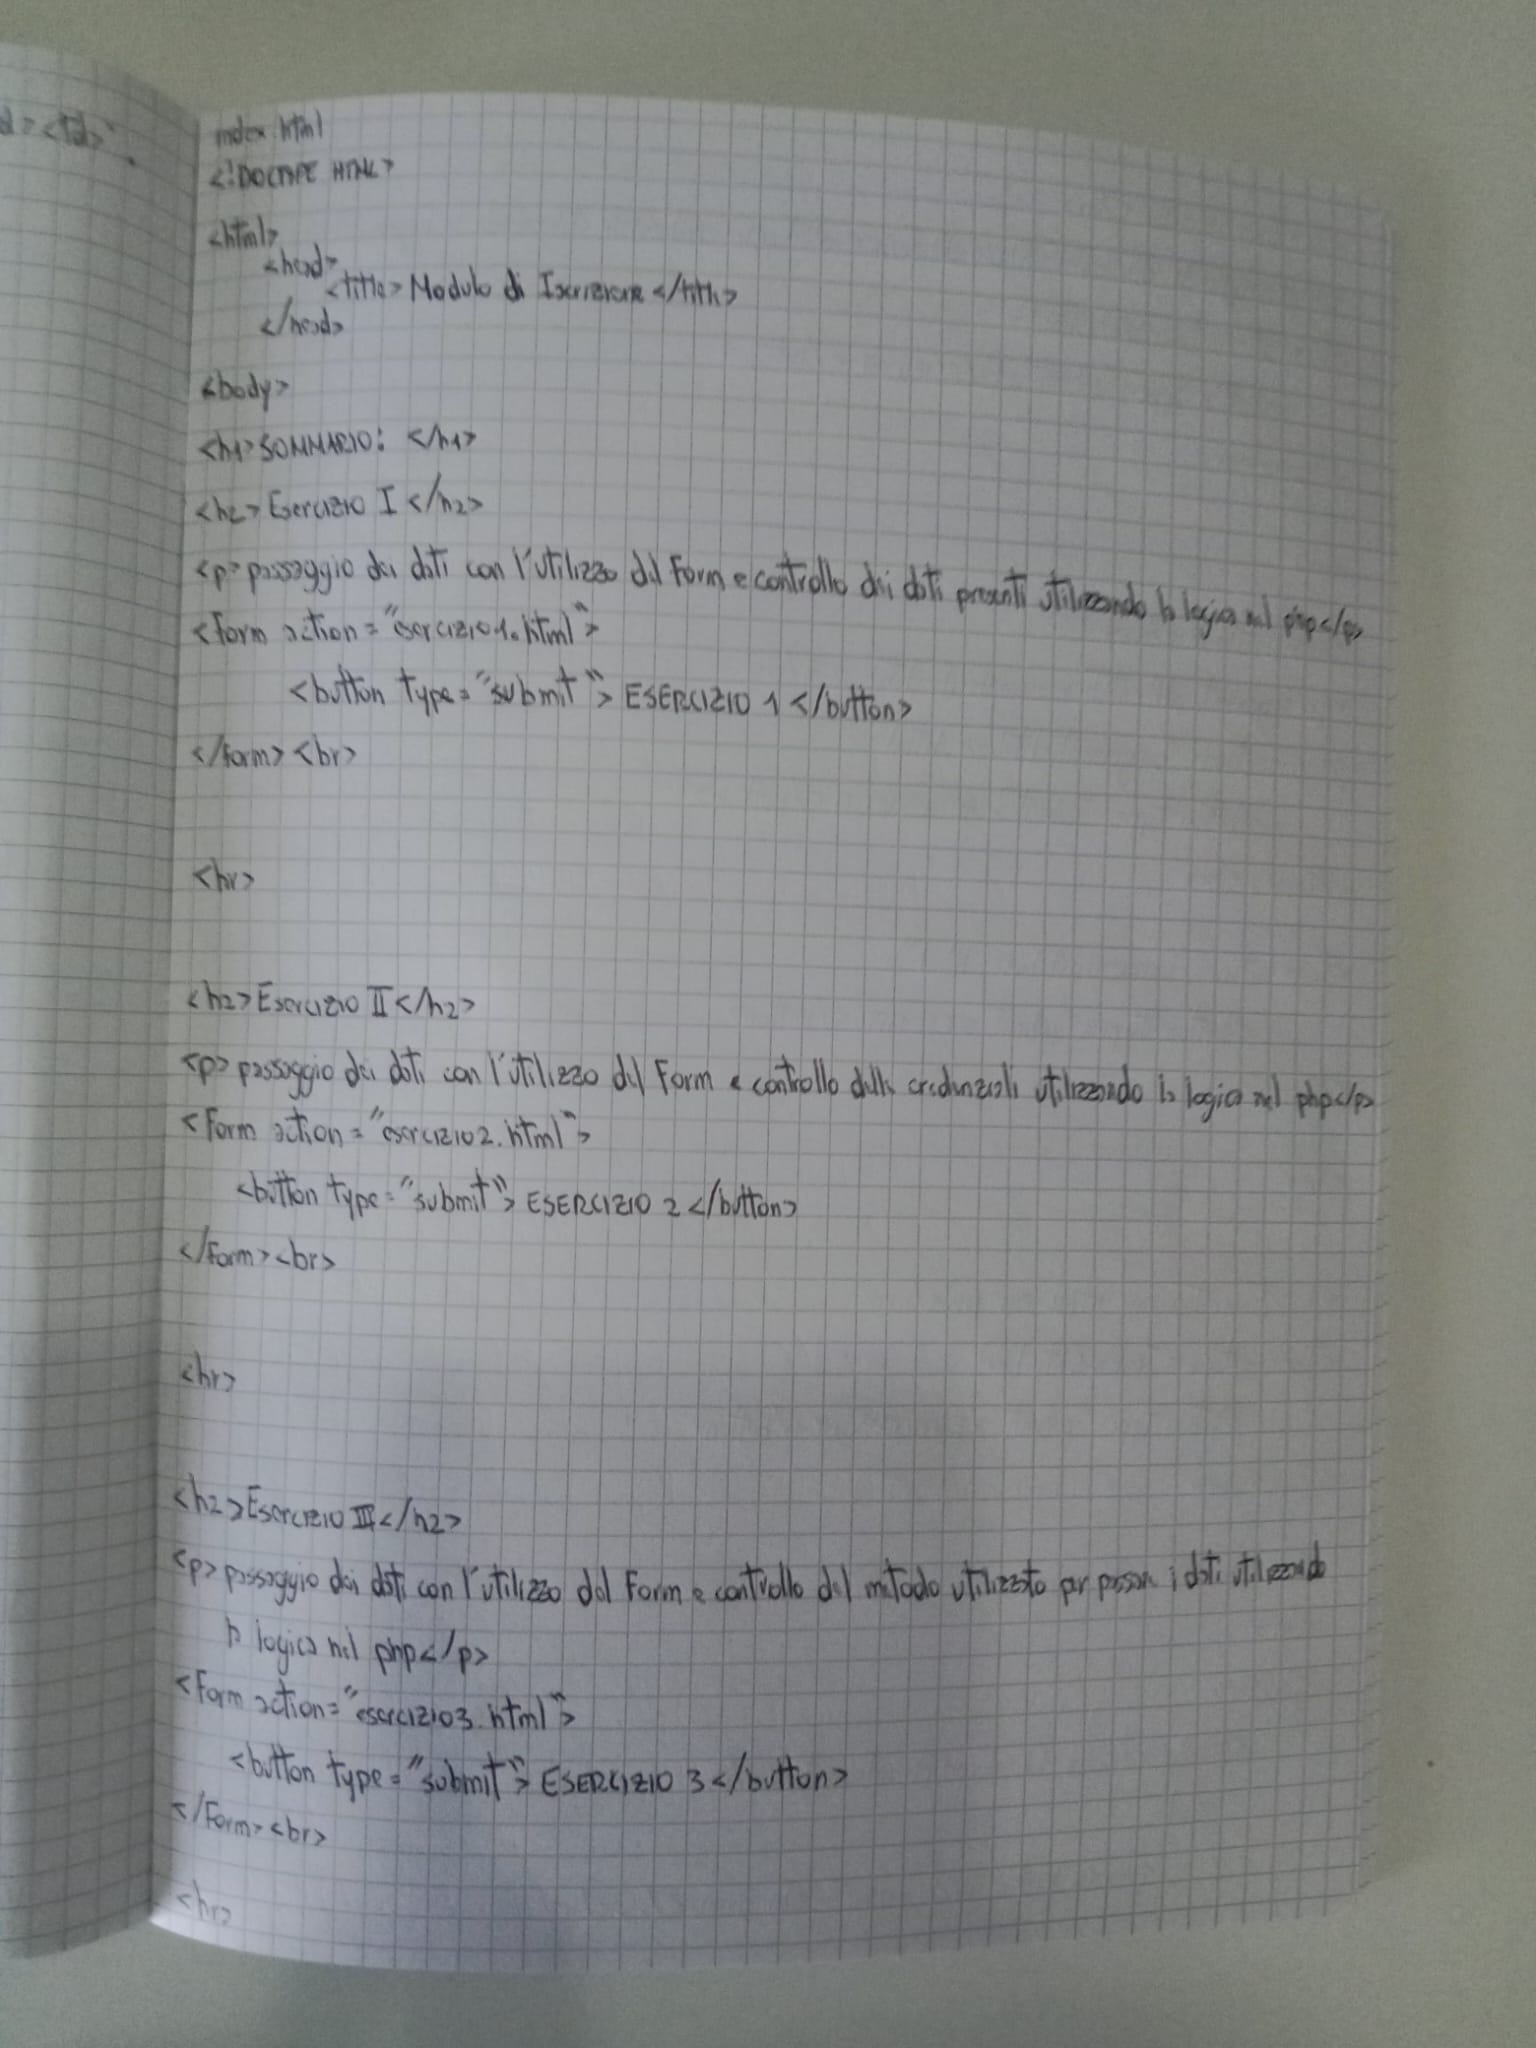 index.html
<!DOCTYPE HTML>
<html>
<head>
<title> Modulo di Iscrizione </title>
</head>
<body>
<h1> SOMMARIO: </h1>
<h2> Esercizio I </h2>
<p> passaggio dei dati con l'utilizzo del Form e controllo dei dati presenti utilizzando la logica nel php</p>
<form action = "esercizio1.html">
<button type = "submit"> ESERCIZIO 1 </button>
</form> <br>
<hr>
<h2> Esercizio II </h2>
<p> passaggio dei dati con l'utilizzo del Form e controllo delle credenziali utilizzando la logica nel php</p>
<form action = "esercizio2.html">
<button type = "submit"> ESERCIZIO 2 </button>
</form> <br>
<hr>
<h2> Esercizio III </h2>
<p> passaggio dei dati con l'utilizzo del Form e controllo del metodo utilizzato per passare i dati utilizzando
la logica nel php</p>
<form action = "esercizio3.html">
<button type = "submit"> ESERCIZIO 3 </button>
</form> <br>
<hr>